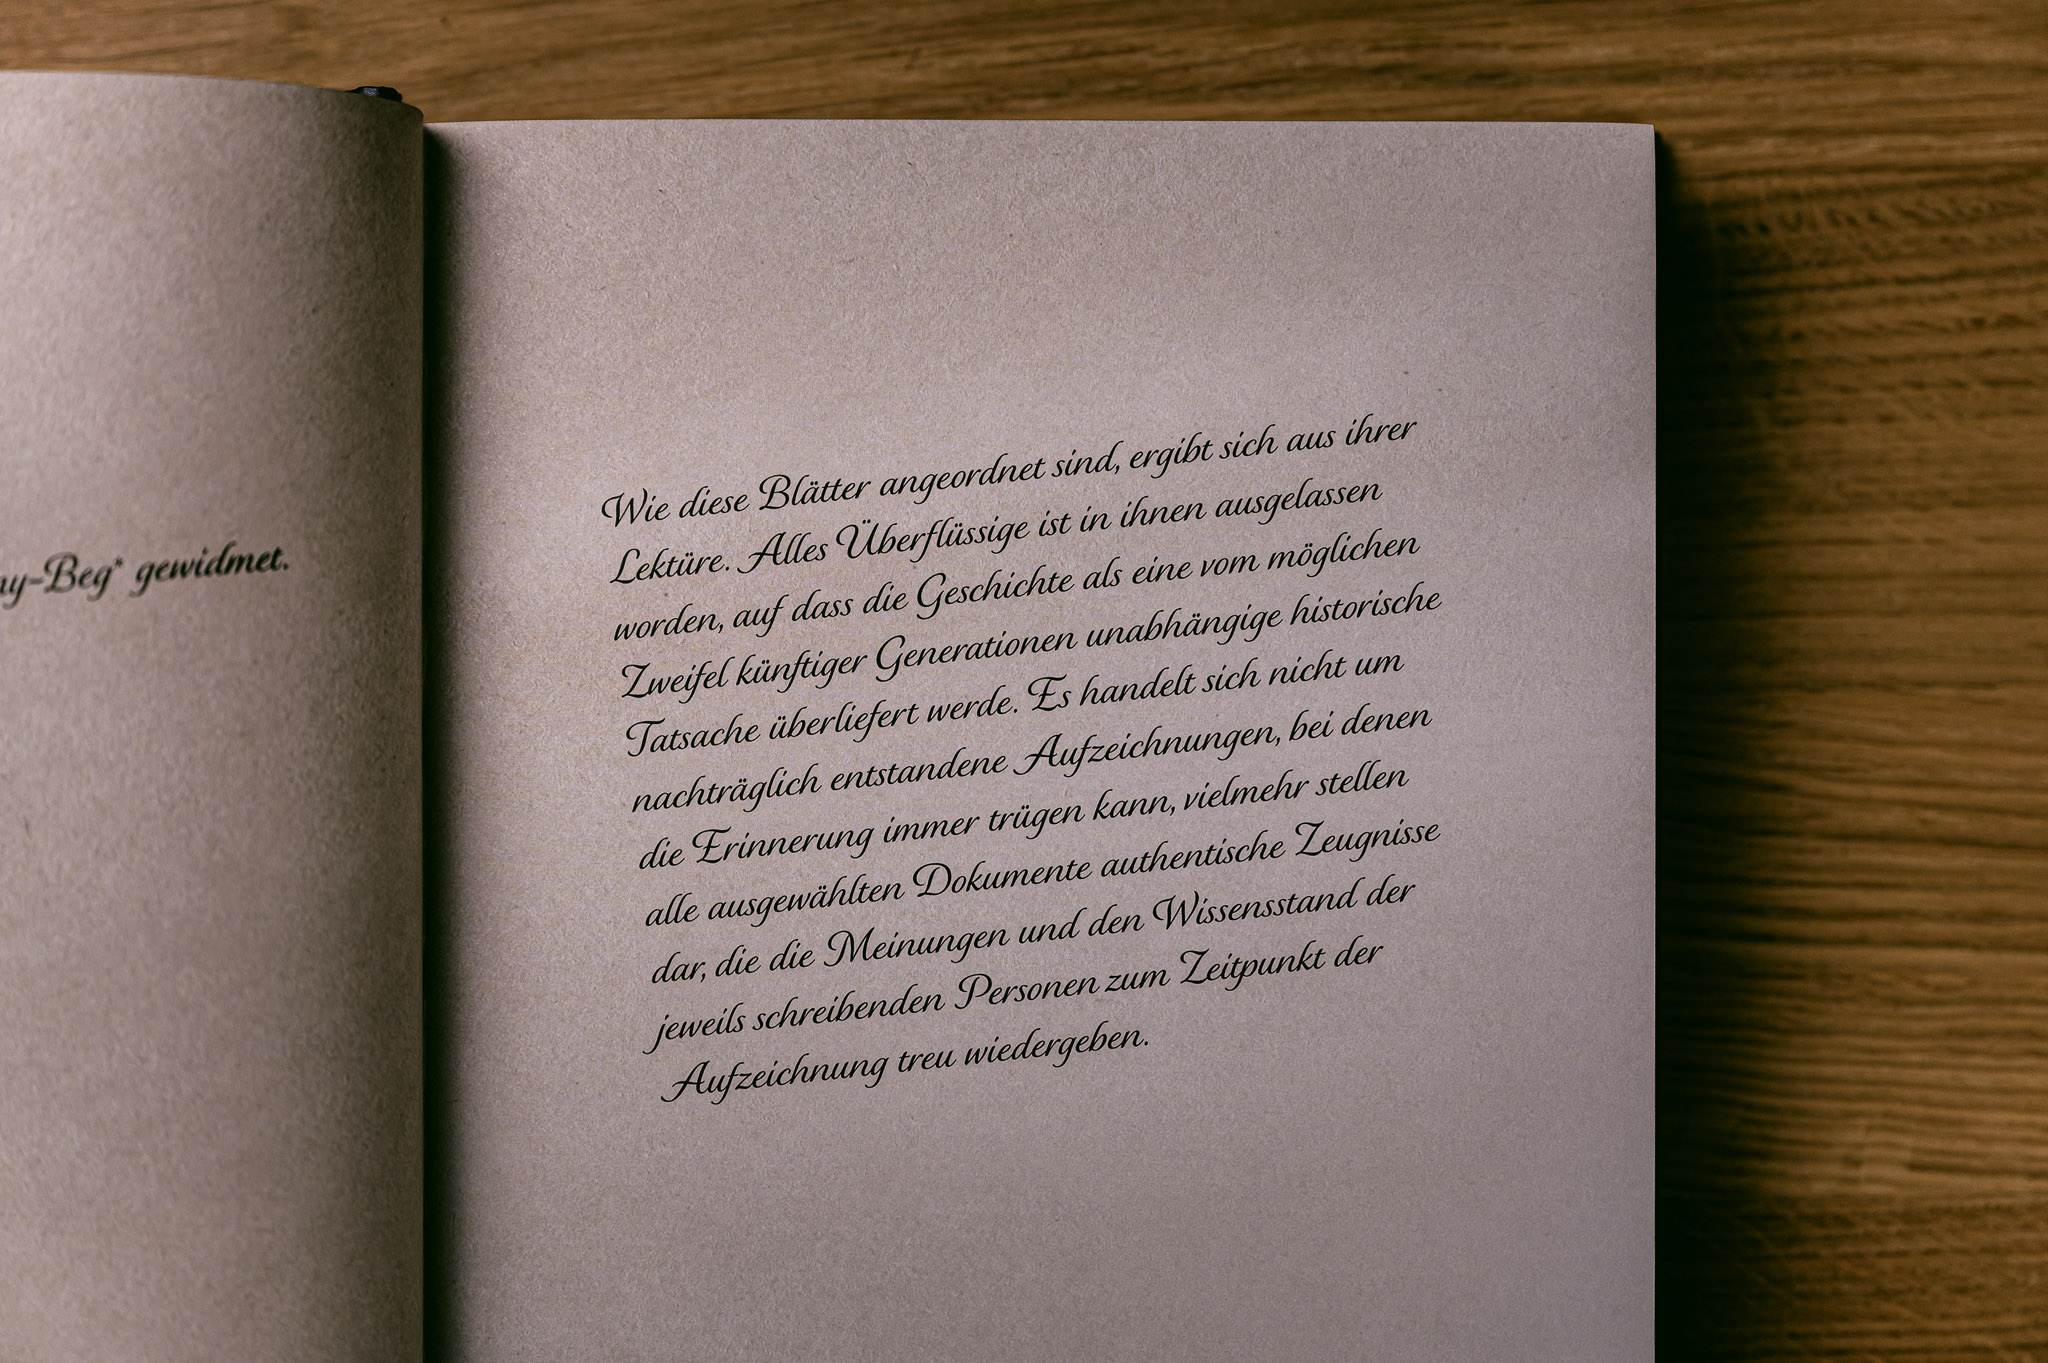 gewidmet.
Wie diese Blätter angeordnet sind, ergibt sich aus ihrer
Lektüre. Alles Überflüssige ist in ihnen ausgelassen
worden, auf dass die Geschichte als eine vom möglichen
Zweifel künftiger Generationen unabhängige historische
Tatsache überliefert werde. Es handelt sich nicht um
nachträglich entstandene Aufzeichnungen, bei denen
die Erinnerung immer trügen kann, vielmehr stellen
alle ausgewählten Dokumente authentische Zeugnisse
dar, die die Meinungen und den Wissensstand der
jeweils schreibenden Personen zum Zeitpunkt der
Aufzeichnung treu wiedergeben.